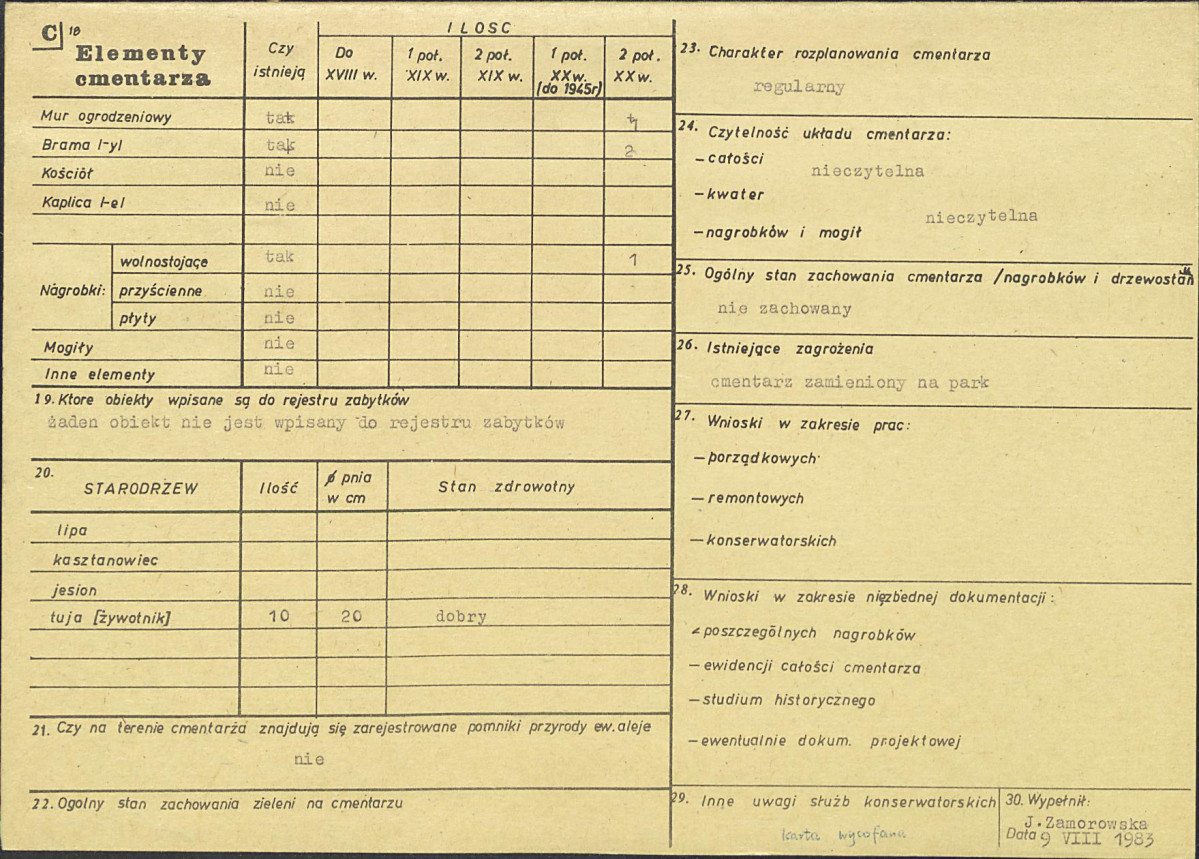 C 18
Elementy cmentarza
Czy istnieją
ILOSC
Do XVIII w.
1 poł. XIX w.
2 poł. XIX w.
1 poł. XX w. (do 1945r)
2 poł. XX w.
Mur ogrodzeniowy tak
Brama /-y/ tak 2
Kościół nie
Kaplica /-e/ nie
Nagrobki:
wolnostojące tak 1
przyścienne nie
płyty nie
Mogiły nie
Inne elementy nie
19. Ktore obiekty wpisane są do rejestru zabytków
żaden obiekt nie jest wpisany do rejestru zabytków
20. STARODRZEW
Ilość
ø pnia w cm
Stan zdrowotny
lipa
kasztanowiec
jesion
tuja [żywotnik] 10 20 dobry
21. Czy na terenie cmentarza znajdują się zarejestrowane pomniki przyrody ew. aleje
nie
22. Ogolny stan zachowania zieleni na cmentarzu
23. Charakter rozplanowania cmentarza
regularny
24. Czytelność układu cmentarza:
- całości
nieczytelna
- kwater
nieczytelna
- nagrobków i mogił
25. Ogólny stan zachowania cmentarza /nagrobków i drzewostan
nie zachowany
26. Istniejące zagrożenia
cmentarz zamieniony na park
27. Wnioski w zakresie prac:
- porządkowych
- remontowych
- konserwatorskich
28. Wnioski w zakresie niezbędnej dokumentacji:
- poszczególnych nagrobków
- ewidencji całości cmentarza
- studium historycznego
- ewentualnie dokum. projektowej
29. Inne uwagi służb konserwatorskich
karta wycofana
30. Wypełnił:
J. Zamorowska
Data 9 VIII 1983